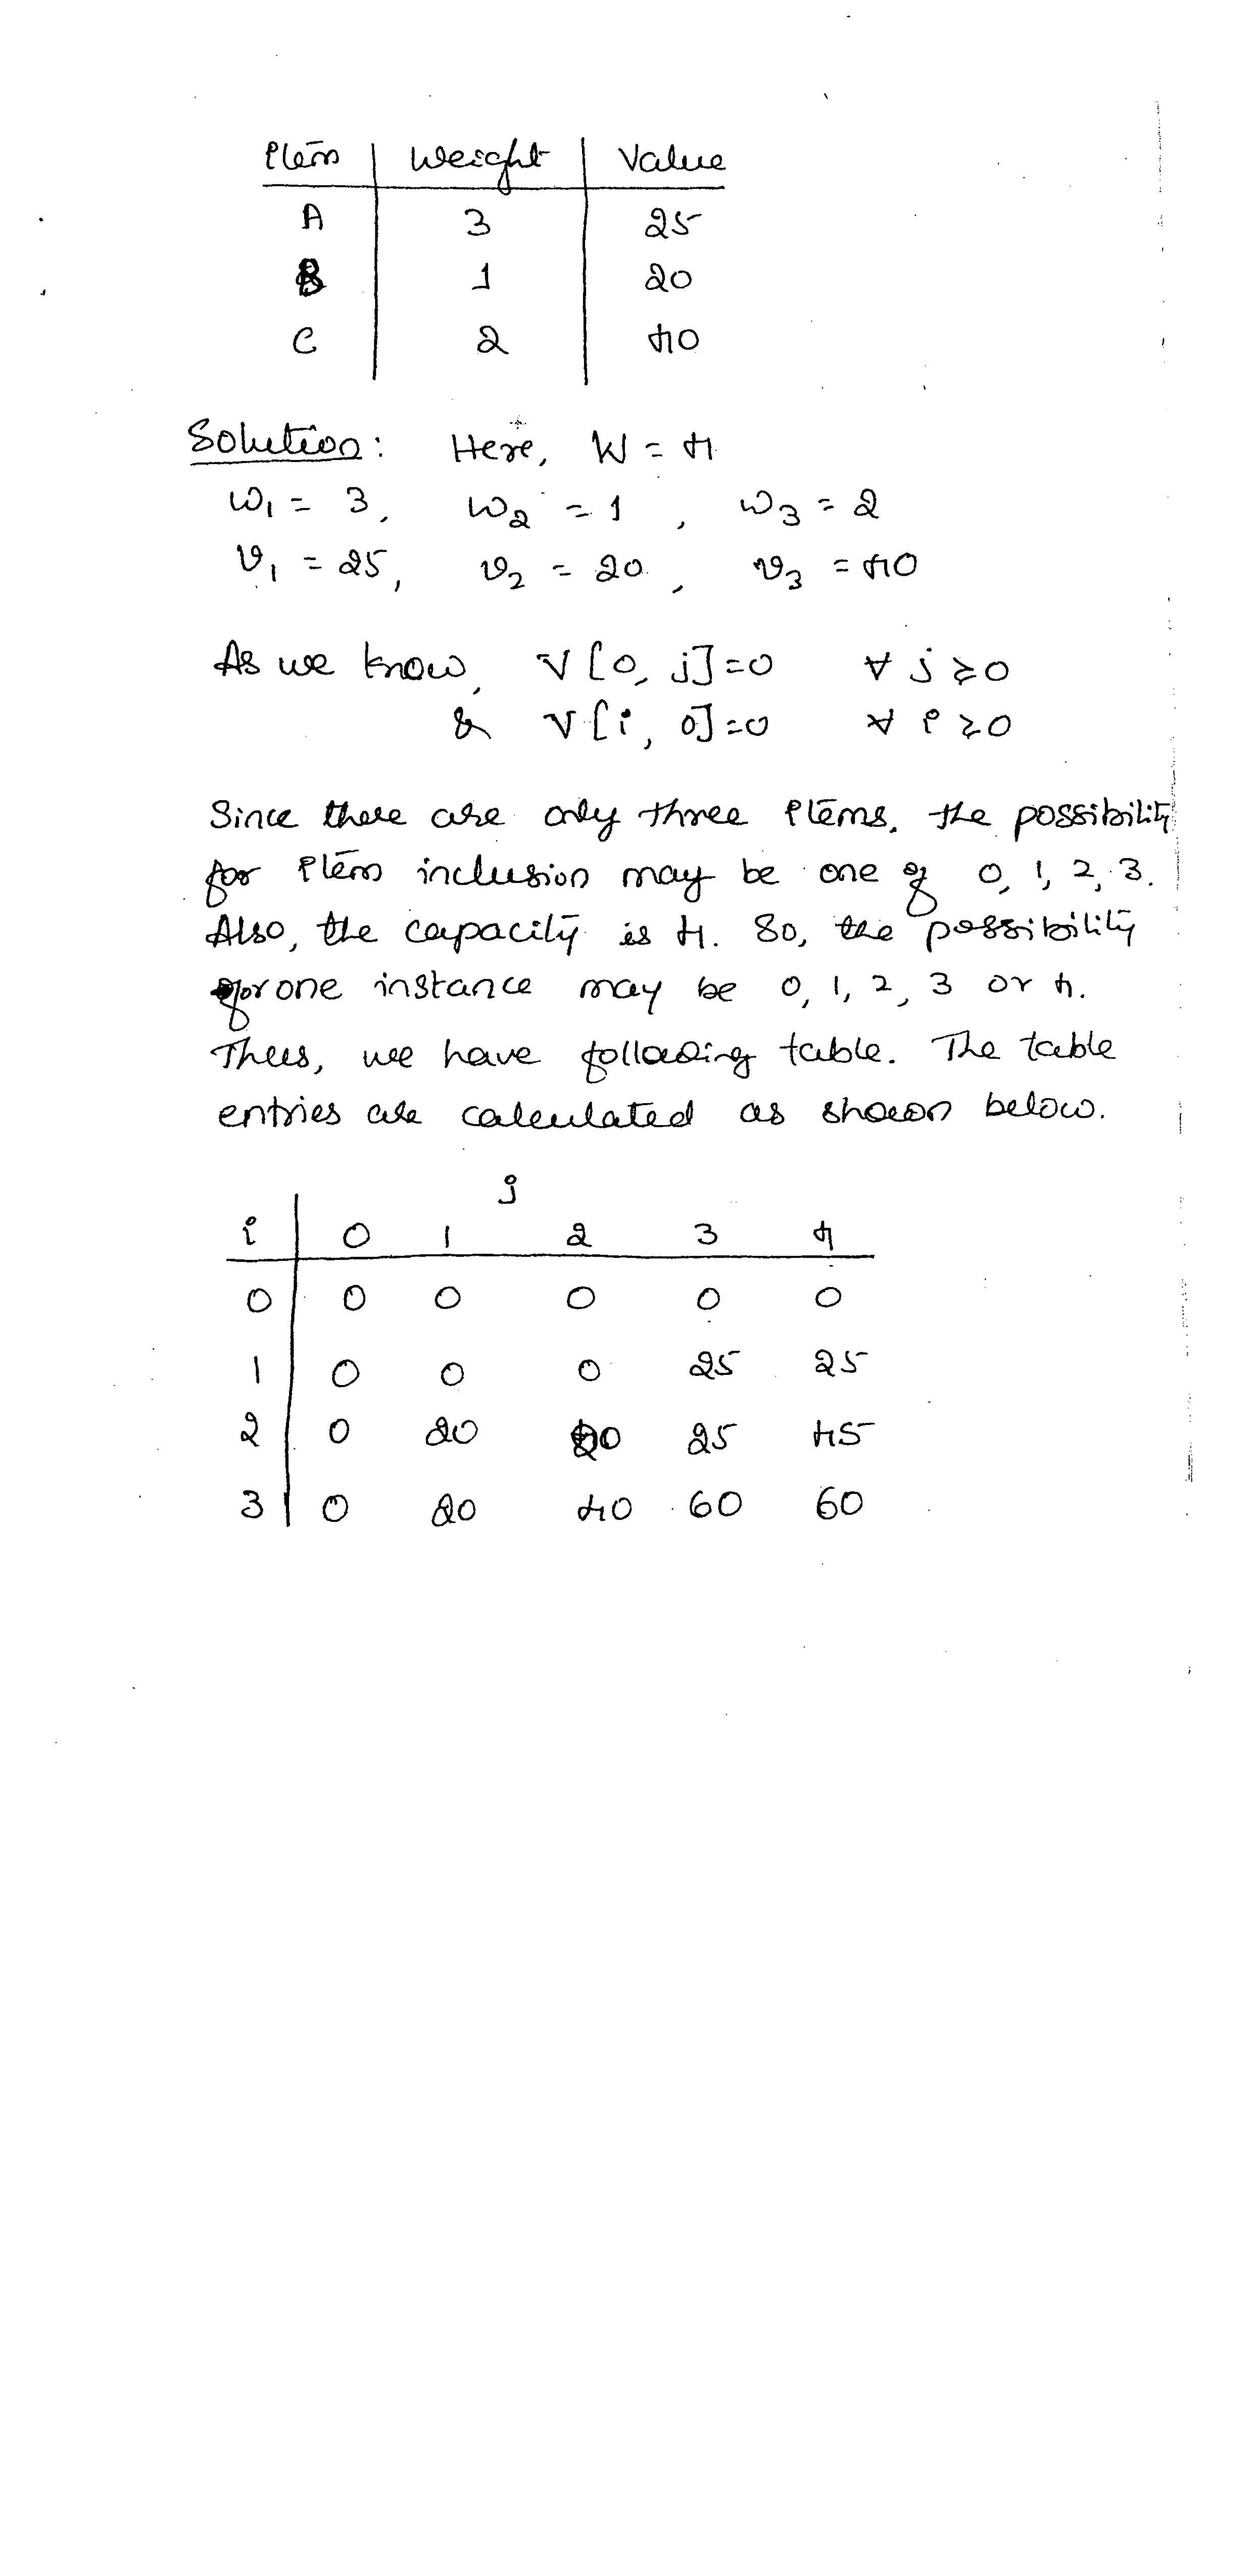 Item Weight Value
A 3 25
B 1 20
C 2 40
Solution: Here, W = 4
w1 = 3, w2 = 1, w3 = 2
v1 = 25, v2 = 20, v3 = 40
As we know, V[0, j]=0 ∀ j ≥ 0
& V[i, 0]=0 ∀ i ≥ 0
Since there are only three items, the possibility
for item inclusion may be one of 0, 1, 2, 3.
Also, the capacity is 4. So, the possibility
for one instance may be 0, 1, 2, 3 or 4.
Thus, we have following table. The table
entries are calculated as shown below.
j
i 0 1 2 3 4
0 0 0 0 0 0
1 0 0 0 25 25
2 0 20 20 25 45
3 0 20 40 60 60